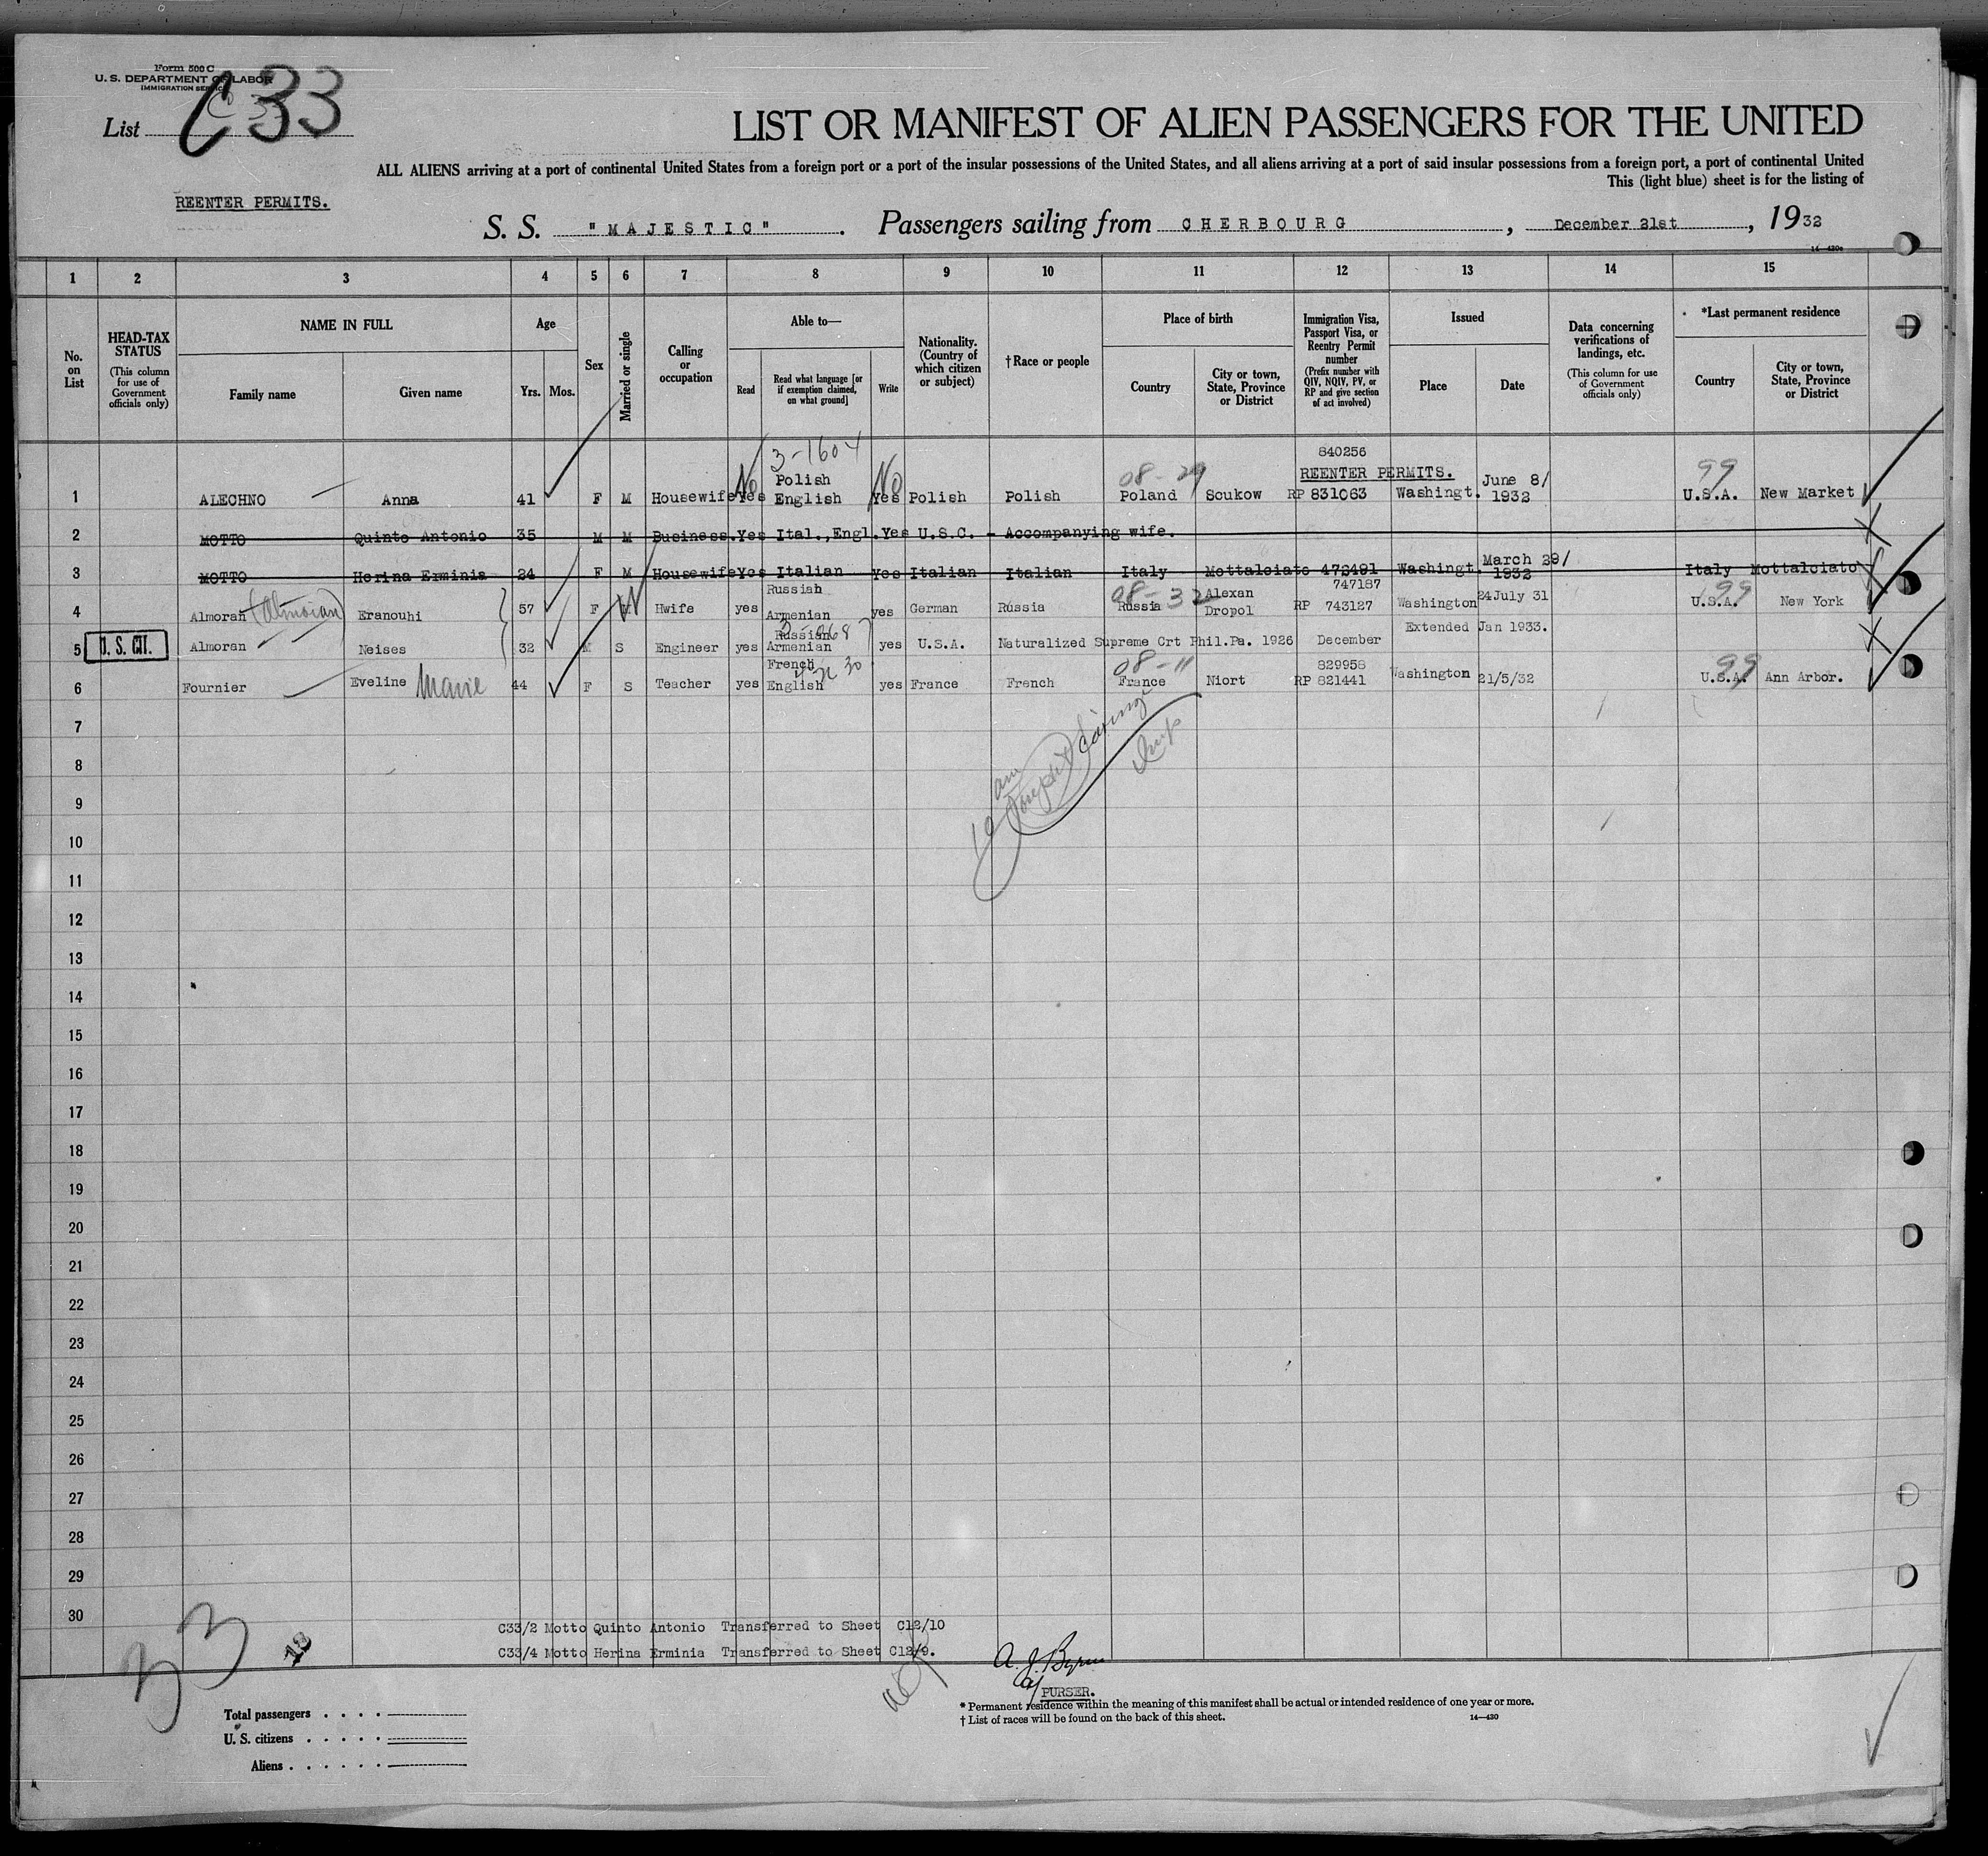 Form 500 C
U. S. DEPARTMENT OF LABOR
IMMIGRATION SERVICE
List C 33
LIST OR MANIFEST OF ALIEN PASSENGERS FOR THE UNITED
ALL ALIENS arriving at a port of continental United States from a foreign port or a port of the insular possessions of the United States, and all aliens arriving at a port of said insular possessions from a foreign port, a port of continental United
This (light blue) sheet is for the listing of
REENTER PERMITS.
S. S. "MAJESTIC" . Passengers sailing from CHERBOURG , December 21st , 1932
1 2 3 4 5 6 7 8 9 10 11 12 13 14 15
No. on List
HEAD-TAX STATUS (This column for use of Government officials only)
NAME IN FULL
Family name Given name
Age
Yrs. Mos.
Sex
Married or single
Calling or occupation
Able to—
Read
Read what language [or if exemption claimed, on what ground]
Write
Nationality. (Country of which citizen or subject)
†Race or people
Place of birth
Country
City or town, State, Province or District
Immigration Visa, Passport Visa, or Reentry Permit number (Prefix number with QIV, NQIV, PV, or RP and give section of act involved)
Issued
Place Date
Data concerning verifications of landings, etc. (This column for use of Government officials only)
*Last permanent residence
Country
City or town, State, Province or District
3-1604 840256
No Polish No 08-29 REENTER PERMITS. June 8/ 99
1 ALECHNO Anna 41 F M Housewife Yes English Yes Polish Polish Poland Soukow RP 831063 Washingt. 1932 U.S.A. New Market
2 MOTTO Quinto Antonio 35 M M Business. Yes Ital.,Engl. Yes U.S.C. - Accompanying wife.
March 29/
3 MOTTO Herina Erminia 24 F M Housewife Yes Italian Yes Italian Italian Italy Mottalciato 476491 Washingt. 1932 Italy Mottalciato
Russian 08-32 Alexan 747187 24July 31 99
4 Almoran (Almoian) Eranouhi 57 F M Hwife yes Armenian yes German Russia Russia Dropol RP 743127 Washington U.S.A. New York
Russian Extended Jan 1933.
5 U. S. CIT. Almoran Neises 32 M S Engineer yes Armenian yes U.S.A. Naturalized Supreme Crt Phil.Pa. 1926 December
French 08-11 829958 99
6 Fournier Eveline Marie 44 F S Teacher yes English yes France French France Niort RP 821441 Washington 21/5/32 U.S.A. Ann Arbor.
7
8
9
10
11
12
13
14
15
16
17
18
19
20
21
22
23
24
25
26
27
28
29
30
C33/2 Motto Quinto Antonio Transferred to Sheet C12/10
C33/4 Motto Herina Erminia Transferred to Sheet C12/9.
33
A. J. Byrne
PURSER.
* Permanent residence within the meaning of this manifest shall be actual or intended residence of one year or more.
† List of races will be found on the back of this sheet.
14—430
Total passengers . . . .
U. S. citizens . . . . .
Aliens . . . . . .